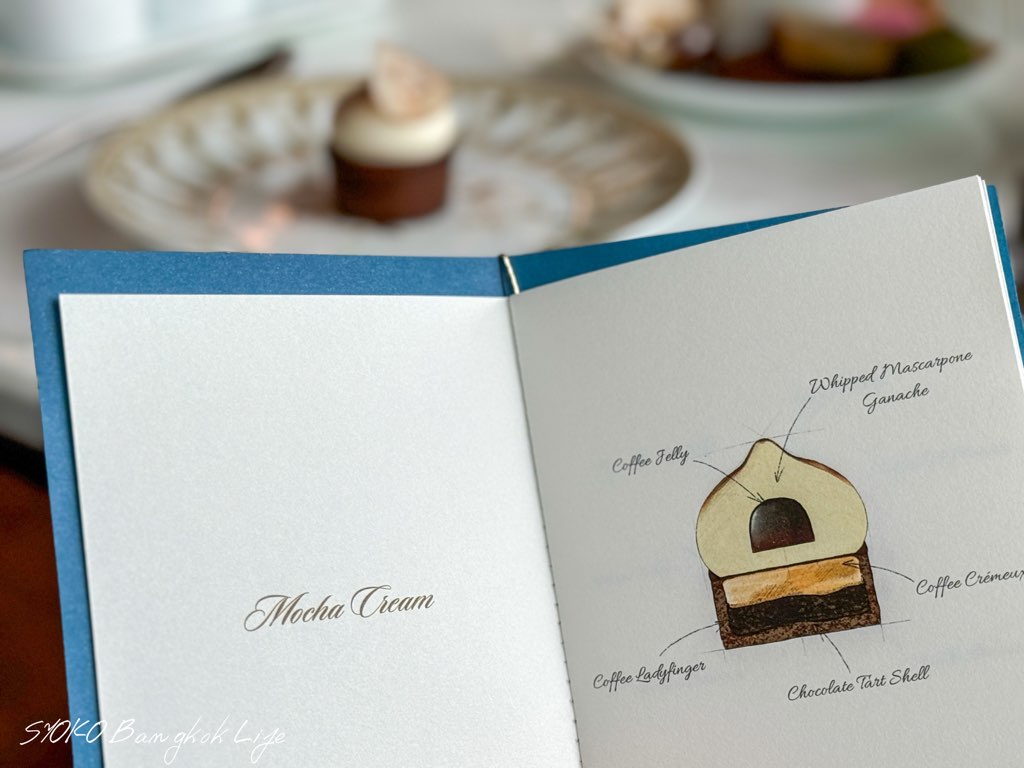 Mocha Cream
Whipped Mascarpone
Ganache
Coffee Jelly
Coffee Crémeux
Coffee Ladyfinger
Chocolate Tart Shell
SYOKO Bangkok Life